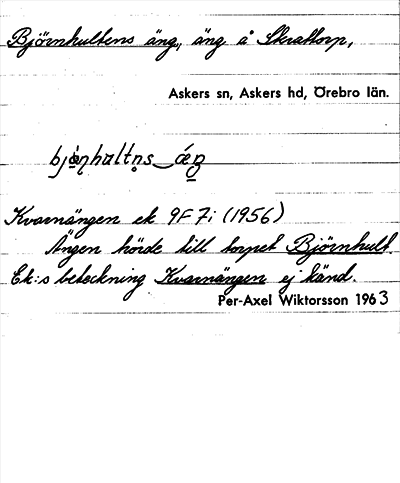 Björnhultens äng, äng å Skrattorp,
Askers sn, Askers hd, Örebro län.
Kvarnängen ek 9F7i (1956)
Ängen hörde till torpet Björnhult.
Ek:s beteckning Kvarnängen ej känd.
Per-Axel Wiktorsson 1963